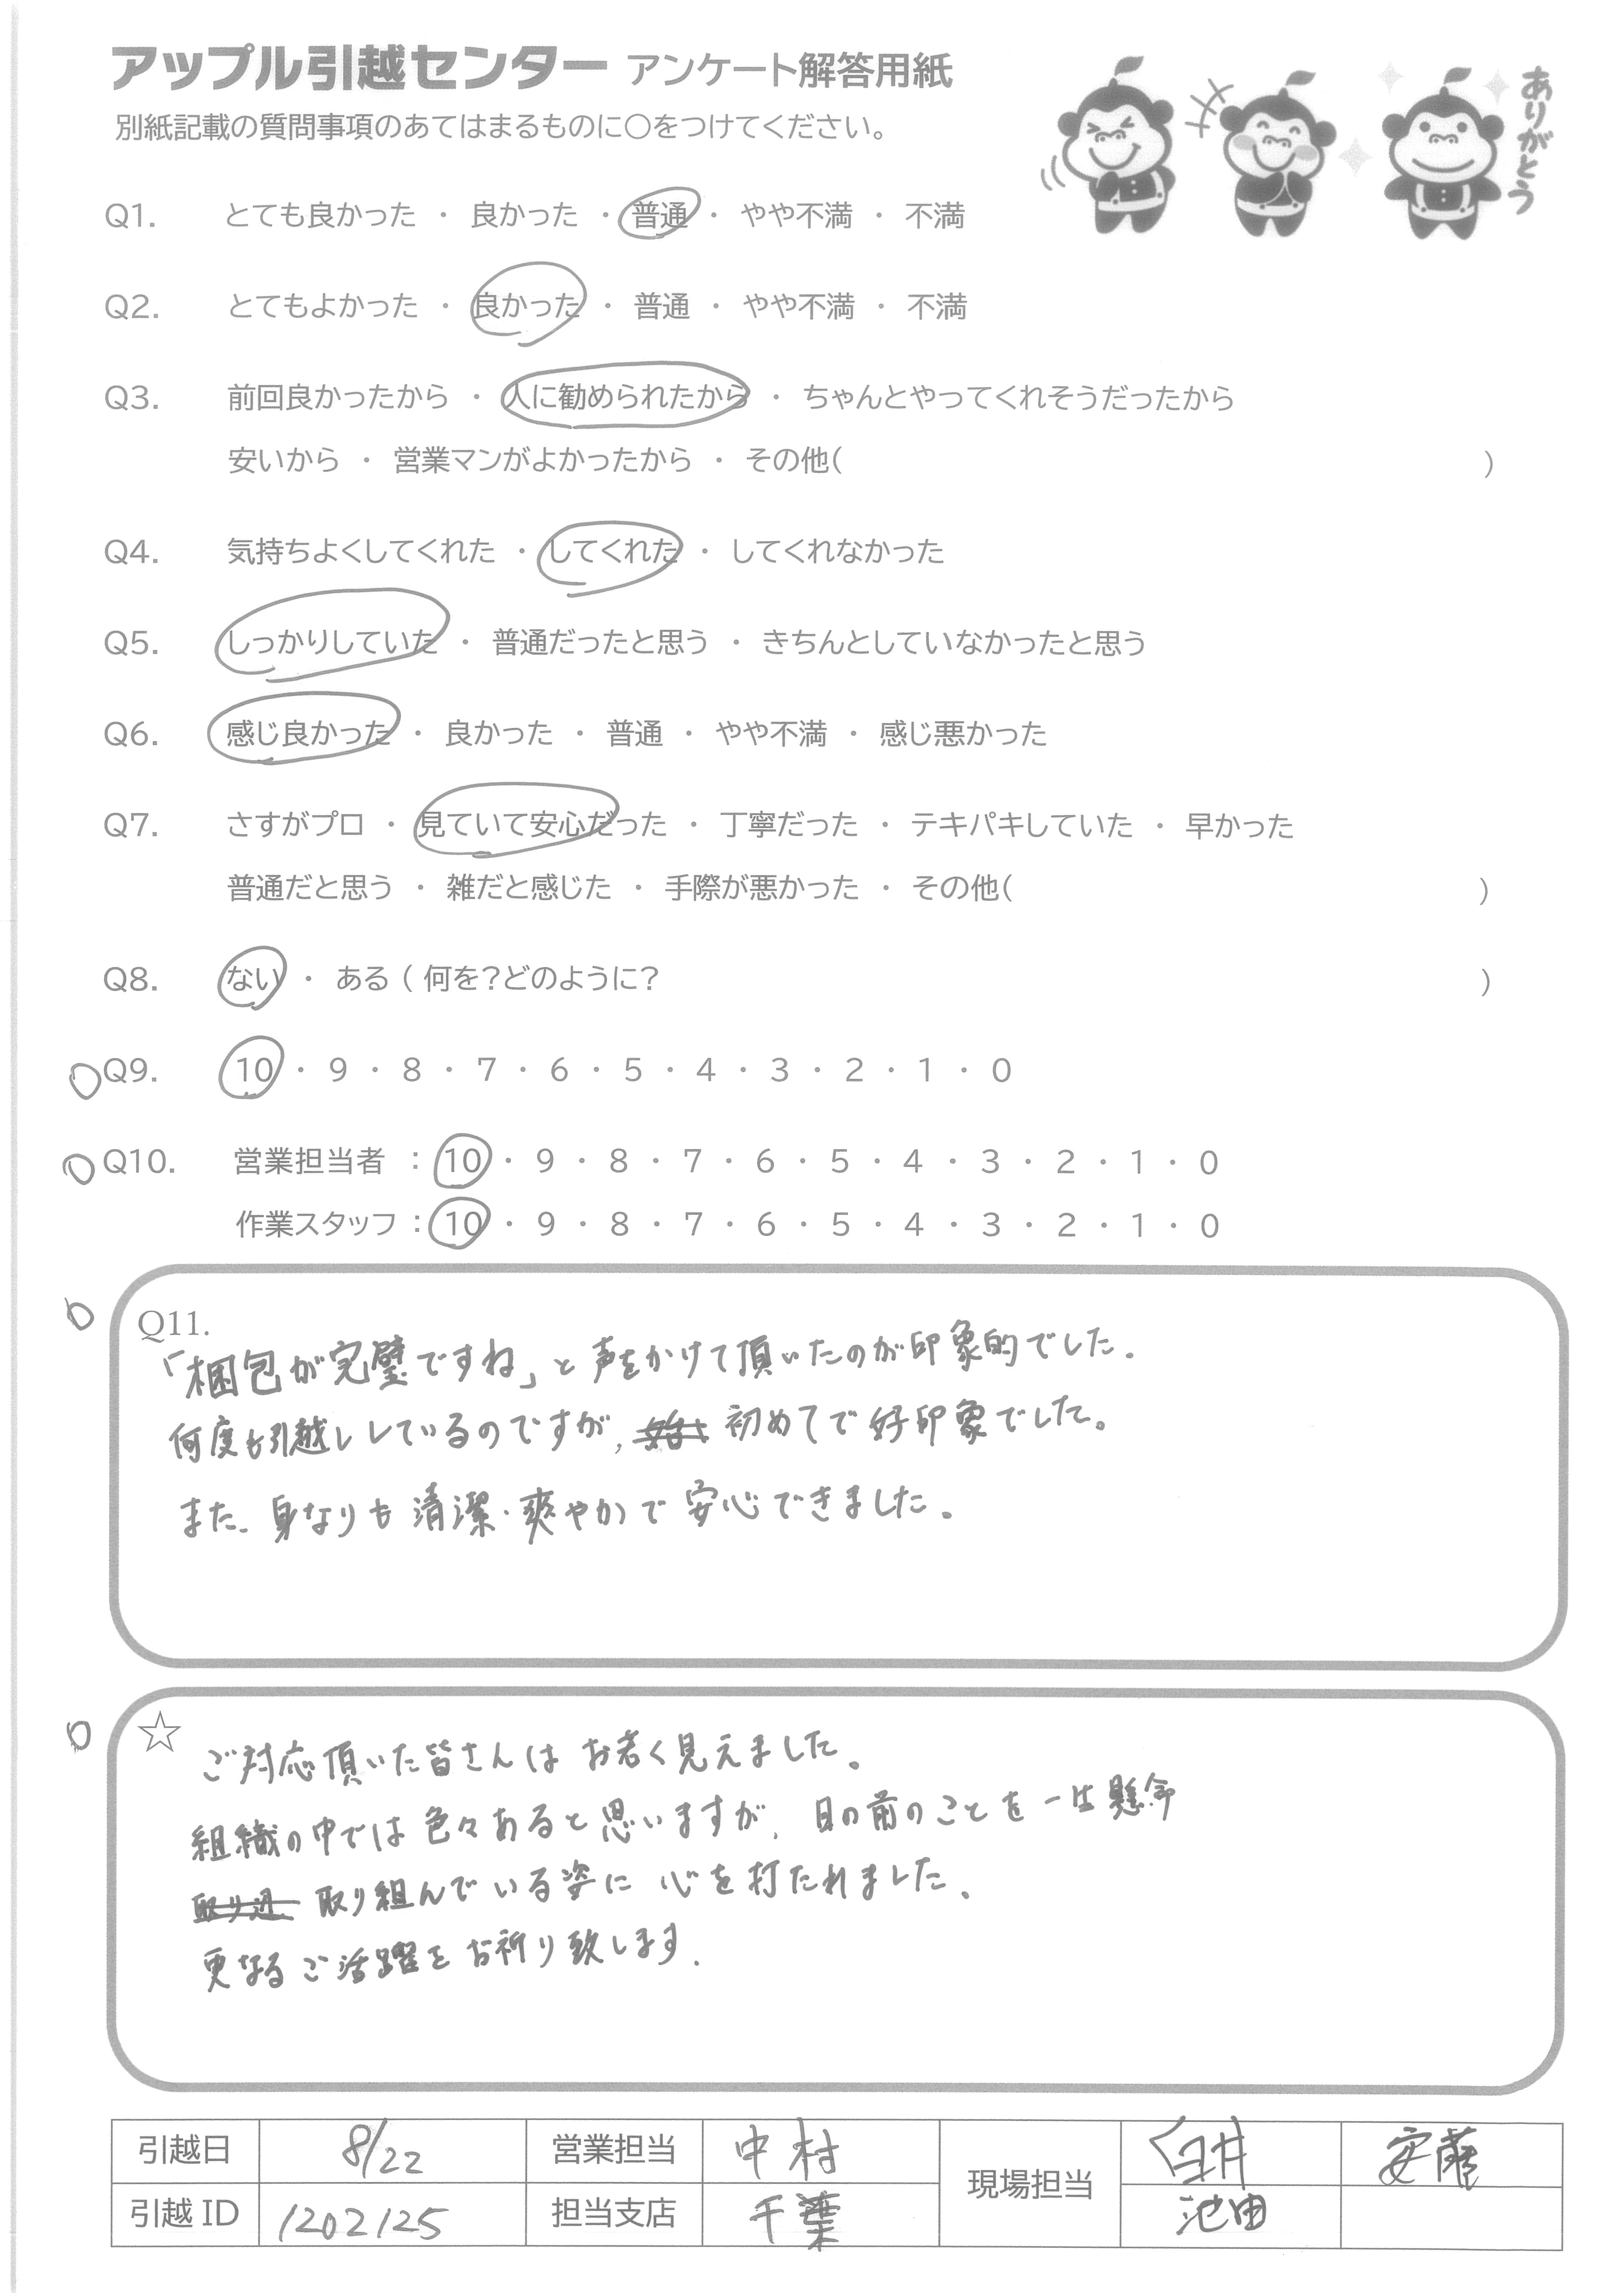 アップル引越センター アンケート解答用紙
別紙記載の質問事項のあてはまるものに○をつけてください。
ありがとう
Q1. とても良かった ・ 良かった ・ 普通 ・ やや不満 ・ 不満
Q2. とてもよかった ・ 良かった ・ 普通 ・ やや不満 ・ 不満
Q3. 前回良かったから ・ 人に勧められたから ・ ちゃんとやってくれそうだったから
安いから ・ 営業マンがよかったから ・ その他( )
Q4. 気持ちよくしてくれた ・ してくれた ・ してくれなかった
Q5. しっかりしていた ・ 普通だったと思う ・ きちんとしていなかったと思う
Q6. 感じ良かった ・ 良かった ・ 普通 ・ やや不満 ・ 感じ悪かった
Q7. さすがプロ ・ 見ていて安心だった ・ 丁寧だった ・ テキパキしていた ・ 早かった
普通だと思う ・ 雑だと感じた ・ 手際が悪かった ・ その他( )
Q8. ない ・ ある ( 何を?どのように? )
Q9. 10 ・ 9 ・ 8 ・ 7 ・ 6 ・ 5 ・ 4 ・ 3 ・ 2 ・ 1 ・ 0
Q10. 営業担当者 : 10 ・ 9 ・ 8 ・ 7 ・ 6 ・ 5 ・ 4 ・ 3 ・ 2 ・ 1 ・ 0
作業スタッフ : 10 ・ 9 ・ 8 ・ 7 ・ 6 ・ 5 ・ 4 ・ 3 ・ 2 ・ 1 ・ 0
Q11.
「梱包が完璧ですね」と声をかけて頂いたのが印象的でした.
何度も引越ししているのですが, 初めてで好印象でした。
また、身なりも清潔・爽やかで安心できました。
☆
ご対応頂いた皆さんはお若く見えました。
組織の中では色々あると思いますが、目の前のことを一生懸命
取り組んでいる姿に心を打たれました。
更なるご活躍をお祈り致します.
引越日 8/22 営業担当 中村 現場担当 臼井 安藤
引越ID 1202125 担当支店 千葉 池田